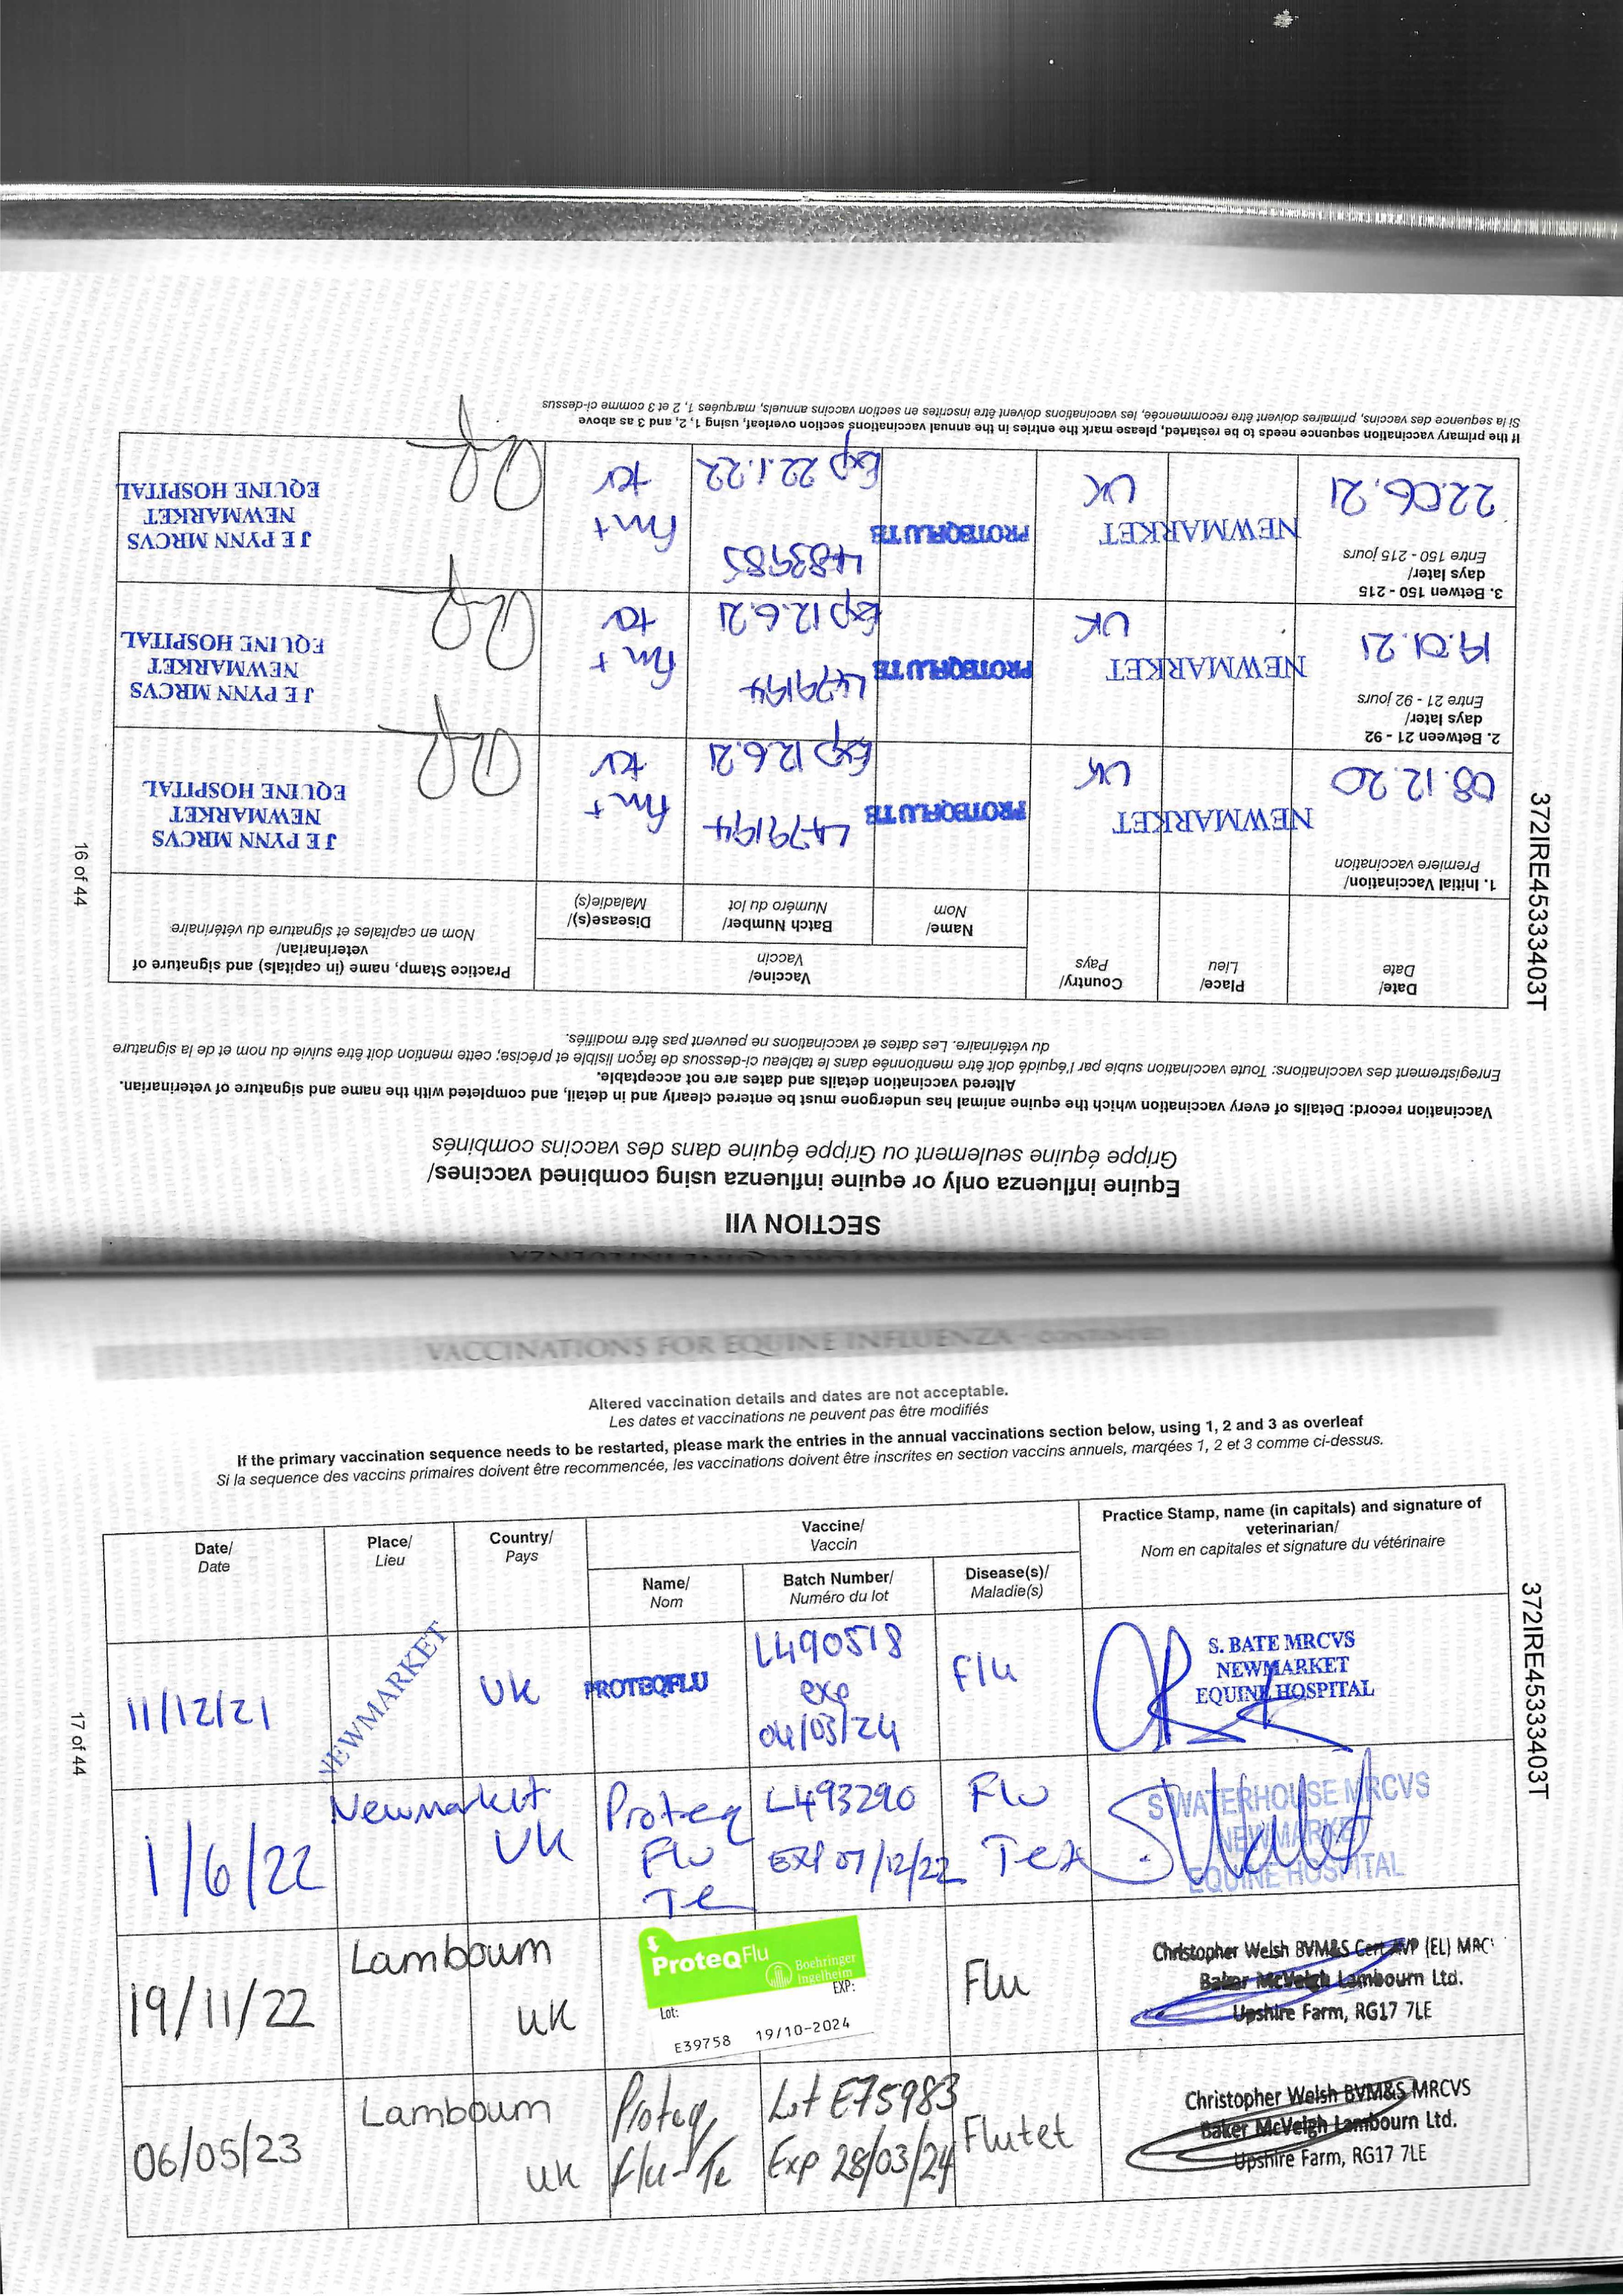 SECTION VII
Equine influenza only or equine influenza using combined vaccines/
Grippe équine seulement ou Grippe équine dans des vaccins combinés
Vaccination record: Details of every vaccination which the equine animal has undergone must be entered clearly and in detail, and completed with the name and signature of veterinarian.
Altered vaccination details and dates are not acceptable.
Enregistrement des vaccinations: Toute vaccination subie par l'équidé doit être mentionnée dans le tableau ci-dessous de façon lisible et précise; cette mention doit être suivie du nom et de la signature
du vétérinaire. Les dates et vaccinations ne peuvent pas être modifiés.
Date/
Date
Place/
Lieu
Country/
Pays
Vaccine/
Vaccin
Practice Stamp, name (in capitals) and signature of
veterinarian/
Nom en capitales et signature du vétérinaire
Name/
Nom
Batch Number/
Numéro du lot
Disease(s)/
Maladie(s)
1. Initial Vaccination/
Première vaccination
08.12.20
NEWMARKET
UK
PROTEQFLU TE
L479194
Exp 12.6.21
J E PYNN MRCVS
NEWMARKET
EQUINE HOSPITAL
2. Between 21 - 92
days later/
Entre 21 - 92 jours
19.01.21
NEWMARKET
UK
PROTEQFLU TE
L479194
Exp 12.6.21
J E PYNN MRCVS
NEWMARKET
EQUINE HOSPITAL
3. Betwen 150 - 215
days later/
Entre 150 - 215 jours
22.06.21
NEWMARKET
UK
PROTEQFLU TE
L483985
Exp 22.1.22
J E PYNN MRCVS
NEWMARKET
EQUINE HOSPITAL
If the primary vaccination sequence needs to be restarted, please mark the entries in the annual vaccinations section overleaf, using 1, 2, and 3 as above
Si la sequence des vaccins, primaires doivent être recommencée, les vaccinations doivent être inscrites en section vaccins annuels, marquées 1, 2 et 3 comme ci-dessus
372IRE45333403T
16 of 44
VACCINATIONS FOR EQUINE INFLUENZA - CONTINUED
Altered vaccination details and dates are not acceptable.
Les dates et vaccinations ne peuvent pas être modifiés
If the primary vaccination sequence needs to be restarted, please mark the entries in the annual vaccinations section below, using 1, 2 and 3 as overleaf
Si la sequence des vaccins primaires doivent être recommencée, les vaccinations doivent être inscrites en section vaccins annuels, marqées 1, 2 et 3 comme ci-dessus.
Date/
Date
Place/
Lieu
Country/
Pays
Vaccine/
Vaccin
Practice Stamp, name (in capitals) and signature of
veterinarian/
Nom en capitales et signature du vétérinaire
Name/
Nom
Batch Number/
Numéro du lot
Disease(s)/
Maladie(s)
11/12/21
NEWMARKET
UK
PROTEQFLU
L490518
exp
04/03/24
Flu
S. BATE MRCVS
NEWMARKET
EQUINE HOSPITAL
1/6/22
Newmarket
UK
Proteq
Flu
Te
L493290
EXP 07/12/22
Flu
Tet
S WATERHOUSE MRCVS
NEWMARKET
EQUINE HOSPITAL
19/11/22
Lambourn
UK
ProteqFlu
Boehringer
Ingelheim
Lot:
EXP:
E39758 19/10-2024
Flu
Christopher Welsh BVM&S Cert AVP (EL) MRC
Baker McVeigh Lambourn Ltd.
Upshire Farm, RG17 7LE
06/05/23
Lambourn
UK
Proteq
Flu-Te
Lot E75983
Exp 28/03/24
Flutet
Christopher Welsh BVM&S MRCVS
Baker McVeigh Lambourn Ltd.
Upshire Farm, RG17 7LE
372IRE45333403T
17 of 44